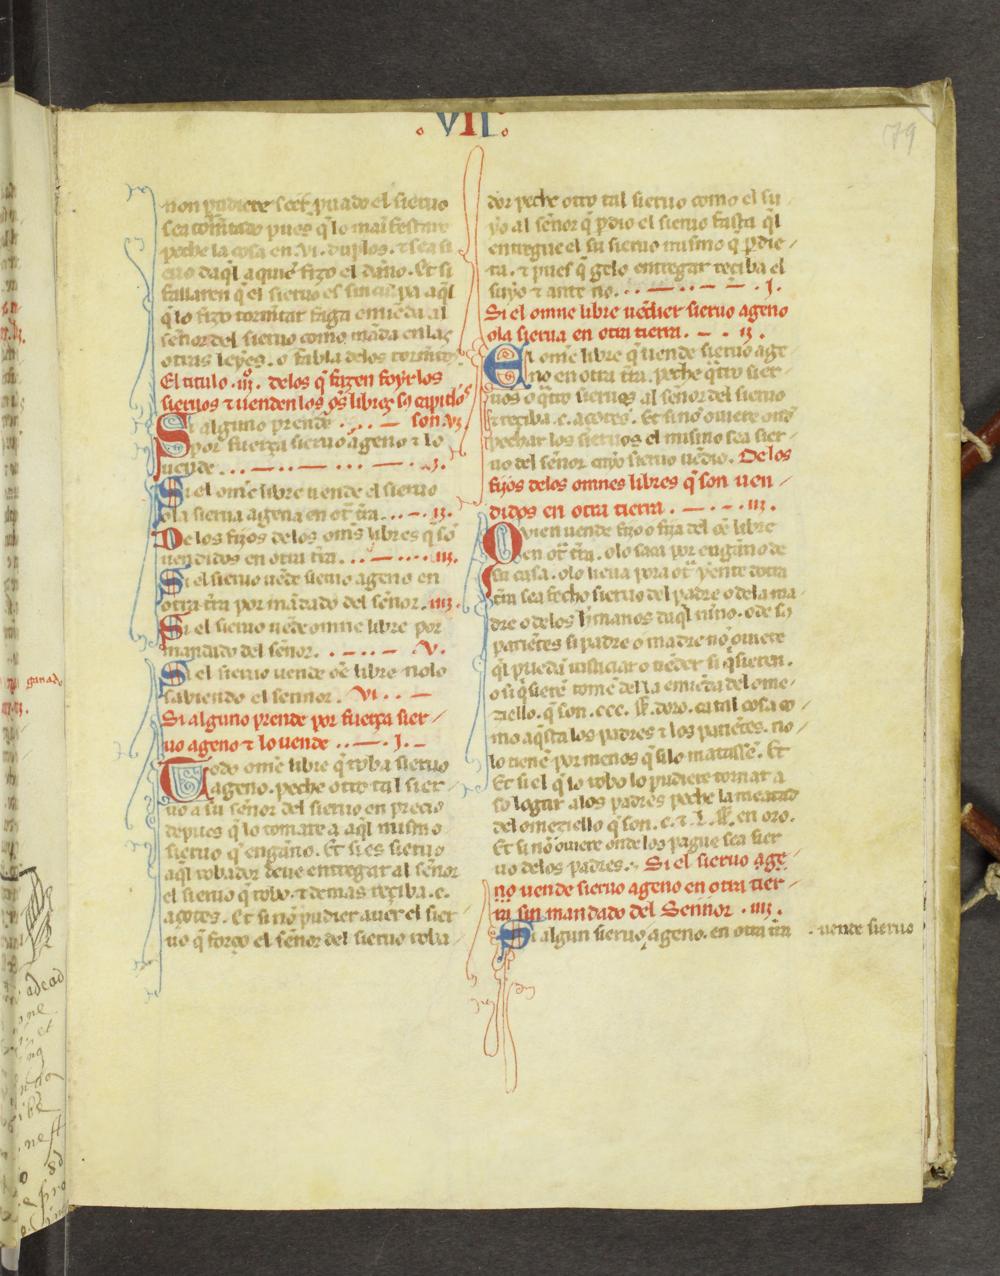 .VII.
79
non pudiere seer puado el sieruo
sea tormtado pues q̃ lo mãifestare
peche la cosa en .vi. duplos. ⁊ sea si
eruo daq̃l a quiẽ fizo el daño. Et si
fallaren q̃ el sieruo es sin culpa aq̃l
q̃ lo fizo tormtar faga emiẽda al
señor del sieruo como mãda en las
otras leyes. o fabla delos tormẽtos
El titulo .iijº. delos q̃ fazen foyr los
sieruos ⁊ uenden los oẽs libres ⁊ sõ capitłos
Si alguno prende . . . — son .vi.
por fuerça sieruo ageno ⁊ lo
uende . . . — . — . . . — . — .i.
Si el omẽ libre uende el sieruo
o la sierua agena en ot̃ tr̃a . . . — .ii.
De los fijos de los om̃s libres q̃ sõ
uendidos en otra tr̃a . . . — . . . . .iii.
Si el sieruo uẽde sieruo ageno en
otra tr̃a por mãdado del señor .iiij.
Si el sieruo uẽde omne libre por
mandado del señor . — . . — . v.
Si el sieruo uende oẽ libro nolo
sabiendo el sennor . vi . . —
Si alguno prende por fuerça sier
uo ageno ⁊ lo uende . . — . I. —
Todo omẽ libre q̃ roba sieruo
ageno. peche otro tal sier
uo a su señor del sieruo en precio
depues q̃ lo tomare a aq̃l mismo
sieruo q̃ engãno. Et si es sieruo
aq̃l robador deue entregar al señor
el sieruo q̃ robo. ⁊ demas reçiba .c.
açotes. Et si nõ pudier auer el sier
uo q̃ forço el señor del sieruo roba
dor peche otro tal sieruo como el su
yo al señor q̃ p̃dio el sieruo fasta q̃l
entregue el su sieruo mismo q̃ p̃die
ra. ⁊ pues q̃ gelo entregar reciba el
suyo ⁊ ante no . . . — . . — — . I.
Si el omne libre uẽdier sieruo ageno
o la sierua en otra tierra . — . ii.
El omẽ libre q̃ uende sieruo age
no en otra tr̃a. peche q̃tro sier
uos o q̃tro sieruas al señor del sieruo
⁊ reçiba .c. açotes. Et si nõ ouiere onde
pechar los sieruos el mismo sea sier
uo del señor cuyo sieruo uẽdio. De los
fijos delos omnes libres q̃ son uen
didos en otra tierra . — . — . iii.
Qvien uende fijo o fija del oẽ libre
en ot̃ tr̃a. o lo saca por engãno de
su casa. o lo lieua pora ot̃ yente dotra
tr̃a sea fecho sieruo del padre o dela ma
dre o delos hmanos daq̃l nino. o de sus
pariẽtes si padre o madre nõ ouiere
q̃l puedã iusticiar o uẽder si q̃sieren.
o si q̃siere tome della emiẽda del ome
ziello. q̃ son .ccc. sł. doro. ca tal cosa co
mo aq̃sta los padres ⁊ los pariẽtes. no
lo tienẽ por menos q̃ silo matasse. Et
Et si el q̃ lo robo lo pudiere tornar a
so logar a los padres peche la meatad
del omeziello q̃ son .c. ⁊ .L. sł. en oro.
Et si nõ ouiere onde los pague sea sier
uo delos padres. Si el sieruo age
no uende sieruo ageno en otra tier
ra sin mandado del Sennor .iiij.
Si algun sieruo ageno. en otra tr̃a
. uende sieruo
ganado